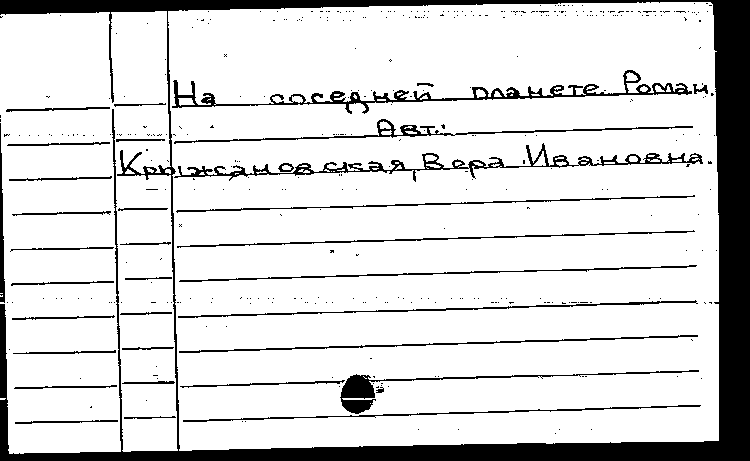 На соседней планете. Роман.
Авт.:
Крыжановская, Вера Ивановна.